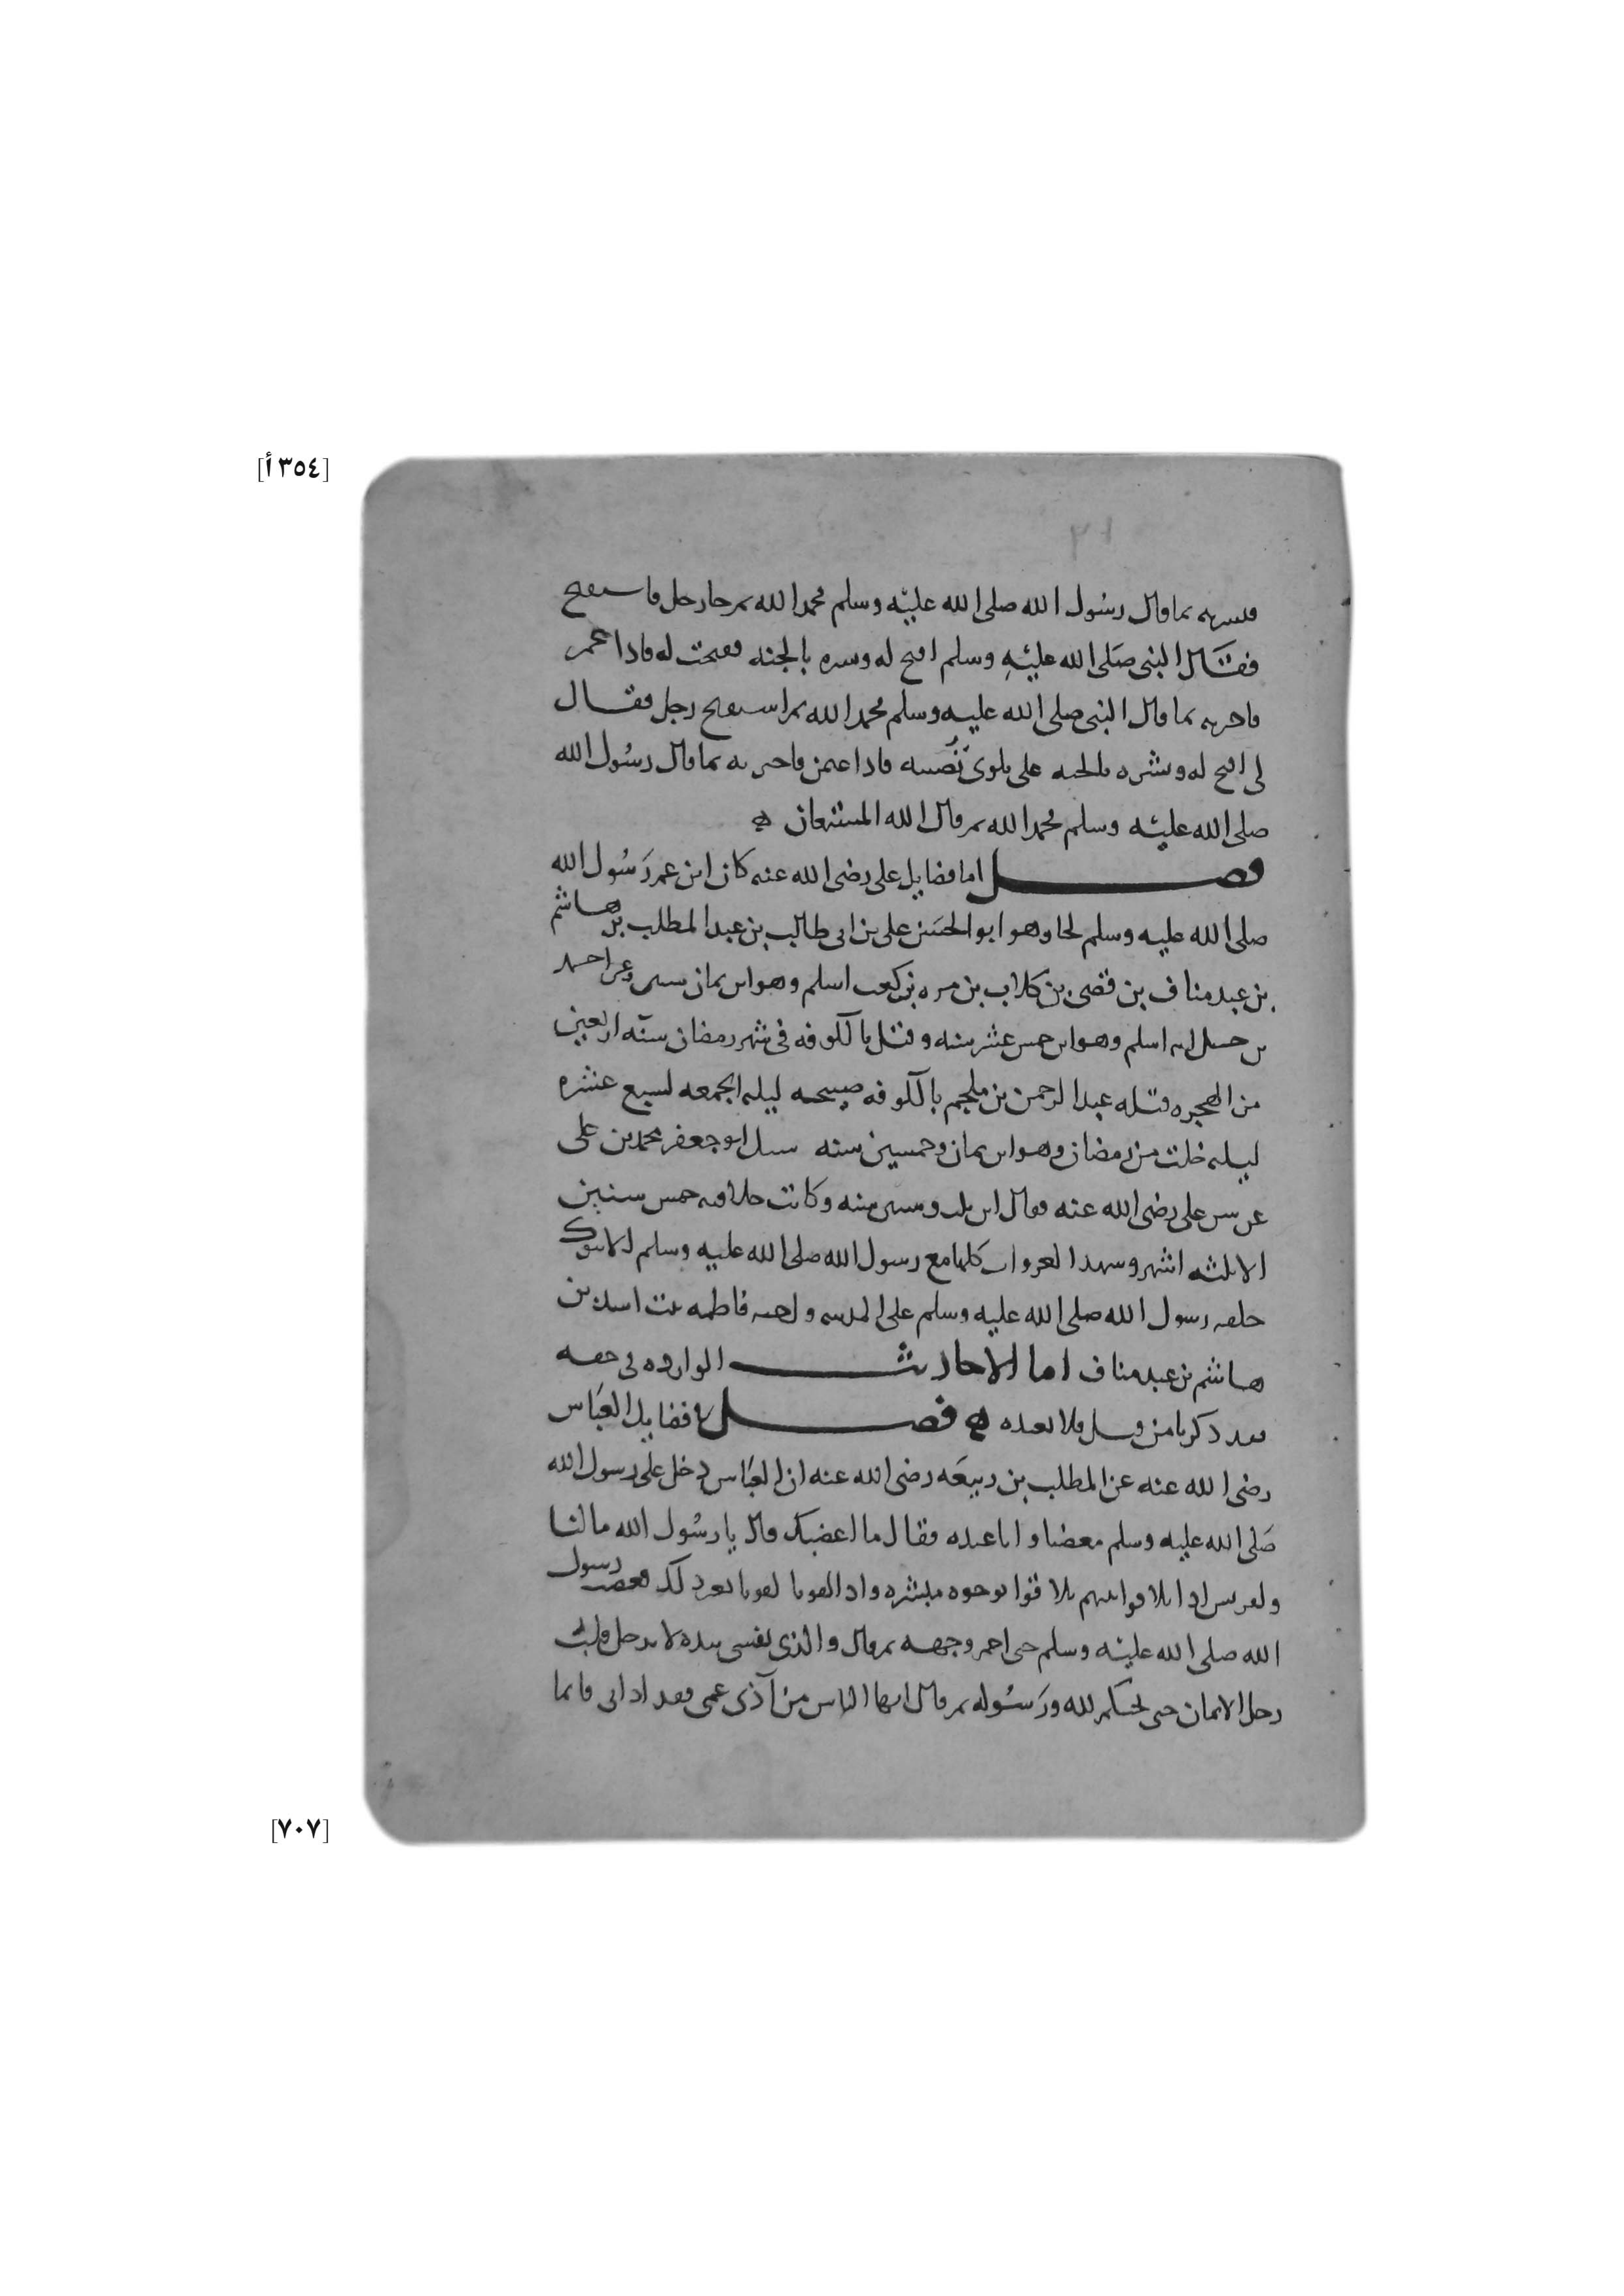 [٣٥٤ أ]
فبشرته بما قال رسول الله صلى الله عليه وسلم فحمد الله ثم جا رجل فاستفتح
فقال النبي صلى الله عليه وسلم افتح له وبشره بالجنه ففتحت له فاذا عمر
فاخبرته بما قال النبي صلى الله عليه وسلم فحمد الله ثم استفتح رجل فقال
لي افتح له وبشره بالجنه على بلوى تصيبه فاذا عثمن فاخبرته بما قال رسول الله
صلى الله عليه وسلم فحمد الله ثم قال الله المستعان ه
فصل اما فضايل على رضى الله عنه كان ابن عم رسول الله
صلى الله عليه وسلم لحا وهو ابو الحسن على بن ابى طالب بن عبد المطلب بن هاشم
بن عبد مناف بن قصى بن كلاب بن مره بن كعب اسلم وهو ابن ثمان سنين وعن احمد
بن حنبل انه اسلم وهو ابن خمس عشر سنه وقتل بالكوفه فى شهر رمضان سنه اربعين
من الهجره قتله عبد الرحمن بن ملجم بالكوفه صبيحه ليله الجمعه لسبع عشره
ليله خلت من رمضان وهو ابن ثمان وخمسين سنه سيل ابو جعفر محمد بن على
عن سن على رضى الله عنه فقال ابن ثلث وستين سنه وكانت خلافته خمس سنين
الا ثلثه اشهر وشهد الغزوات كلها مع رسول الله صلى الله عليه وسلم الا تبوك
خلفه رسول الله صلى الله عليه وسلم على المدينه وامه فاطمه بنت اسد بن
هاشم بن عبد مناف اما الاحاديث الوارده فى حقه
فقد ذكرنا من قبل فلا نعده ه فصل فى فضايل العباس
رضى الله عنه عن المطلب بن ربيعه رضى الله عنه ان العباس دخل على رسول الله
صلى الله عليه وسلم مغضبا وانا عنده فقال ما اغضبك قال يا رسول الله ما لنا
ولقريش اذا تلاقوا بينهم تلاقوا بوجوه مبشره واذا لقونا لقونا بغير ذلك فغضب رسول
الله صلى الله عليه وسلم حتى احمر وجهه ثم قال والذى نفسى بيده لا يدخل قلب
رجل الايمان حتى يحبكم لله ورسوله ثم قال ايها الناس من آذى عمى فقد اذانى فانما
[٧٠٧]